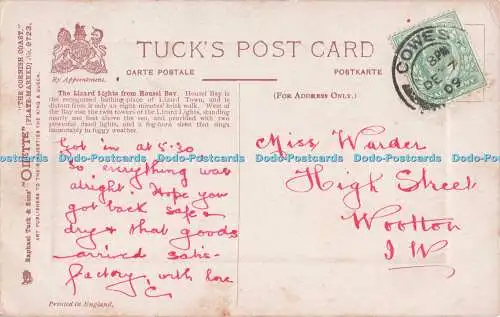 "THE CORNISH COAST."
Raphael Tuck & Sons' "OILETTE" (PLATE-MARKED) No. 9723.
ART PUBLISHERS TO THEIR MAJESTIES THE KING & QUEEN.
By Appointment.
TUCK'S POST CARD
CARTE POSTALE
POSTKARTE
(FOR ADDRESS ONLY.)
COWES
8PM
DE 7
The Lizard Lights from Housel Bay. Housel Bay is
the recognised bathing-place of Lizard Town, and is
distant from it only an eight minutes' brisk walk. West of
the Bay rise the twin towers of the Lizard Lights, standing
nearly 200 feet above the sea, and provided with two
powerful fixed lights, and a fog-horn siren that sings
immoderately in foggy weather.
Got in at 5·30
So everything was
alright. Hope you
got back safe &
dry & that goods
arrived satis-
factory, with love
C
Miss Warder
High Street
Wootton
I W
Printed in England.
Dodo-Postcards